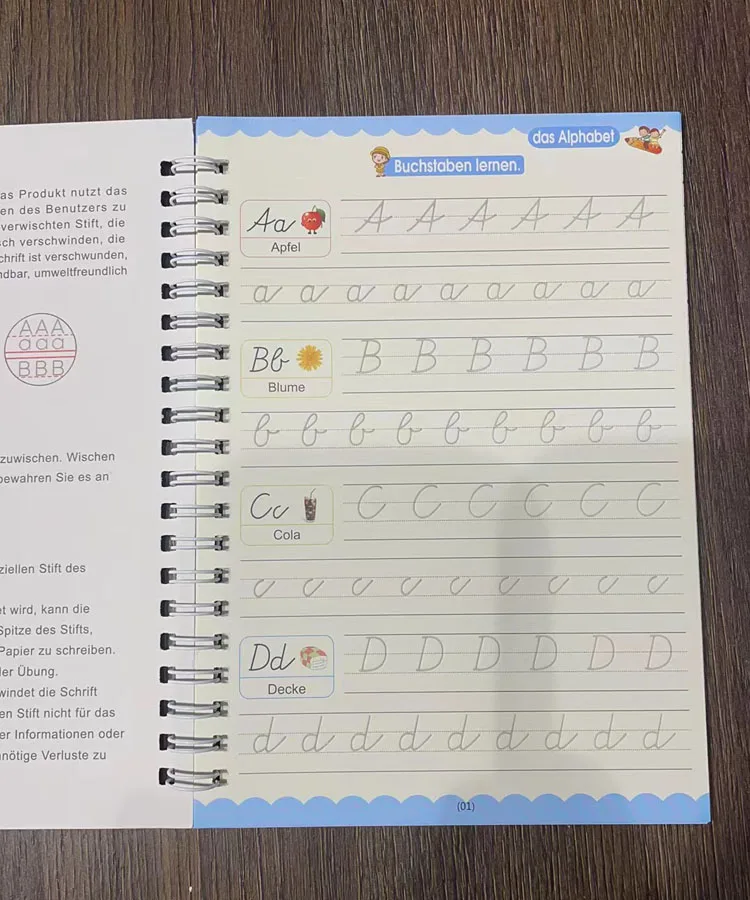 as Produkt nutzt das
en des Benutzers zu
verwischten Stift, die
sch verschwinden, die
chrift ist verschwunden,
ndbar, umweltfreundlich
AAA
aaa
BBB
zuwischen. Wischen
bewahren Sie es an
ziellen Stift des
et wird, kann die
Spitze des Stifts,
Papier zu schreiben.
der Übung.
windet die Schrift
en Stift nicht für das
er Informationen oder
nnötige Verluste zu
das Alphabet
Buchstaben lernen.
Aa
Apfel
A A A A A A
a a a a a a a a a
Bb
Blume
B B B B B B
b b b b b b b b b
Cc
Cola
C C C C C C
c c c c c c c c c
Dd
Decke
D D D D D D
d d d d d d d d d
(01)